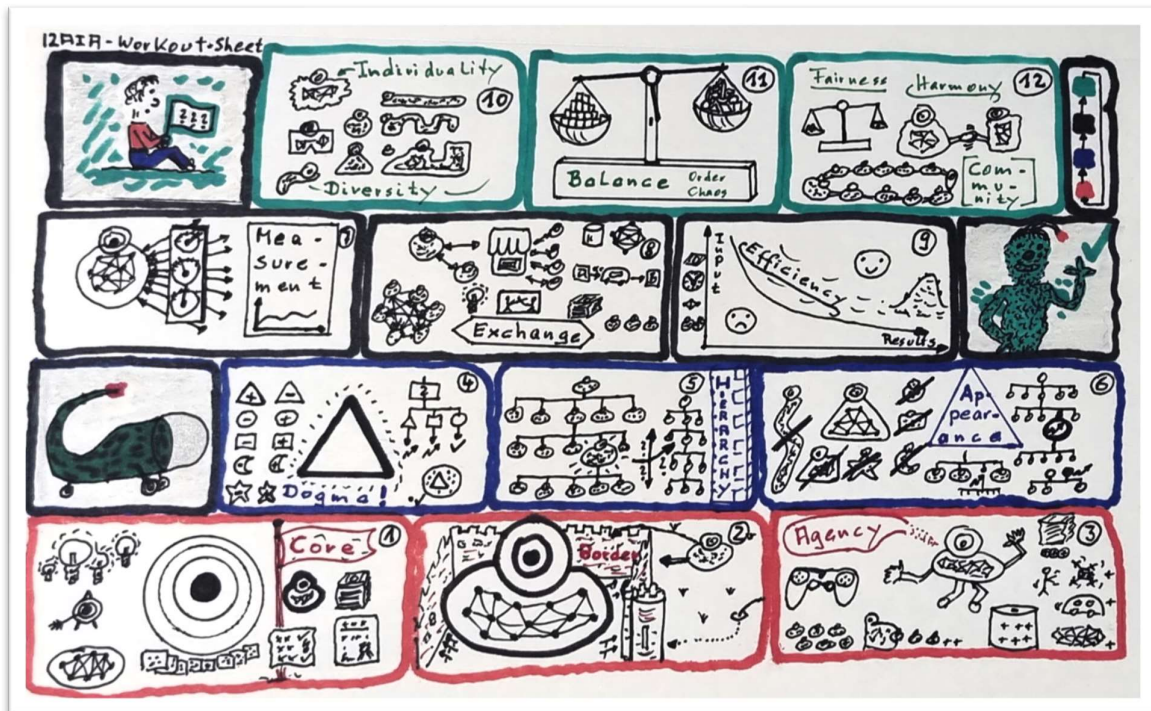 12AIA-Workout-Sheet
Individuality
10
Diversity
11
Balance
Order
Chaos
Fairness
Harmony
12
Com-
mu-
nity
Mea-
sure-
ment
7
8
Exchange
Input
Efficiency
9
Results
4
Dogma!
5
HIERARCHY
Ap-
pear-
ance
6
Core
1
Border
2
Agency
3